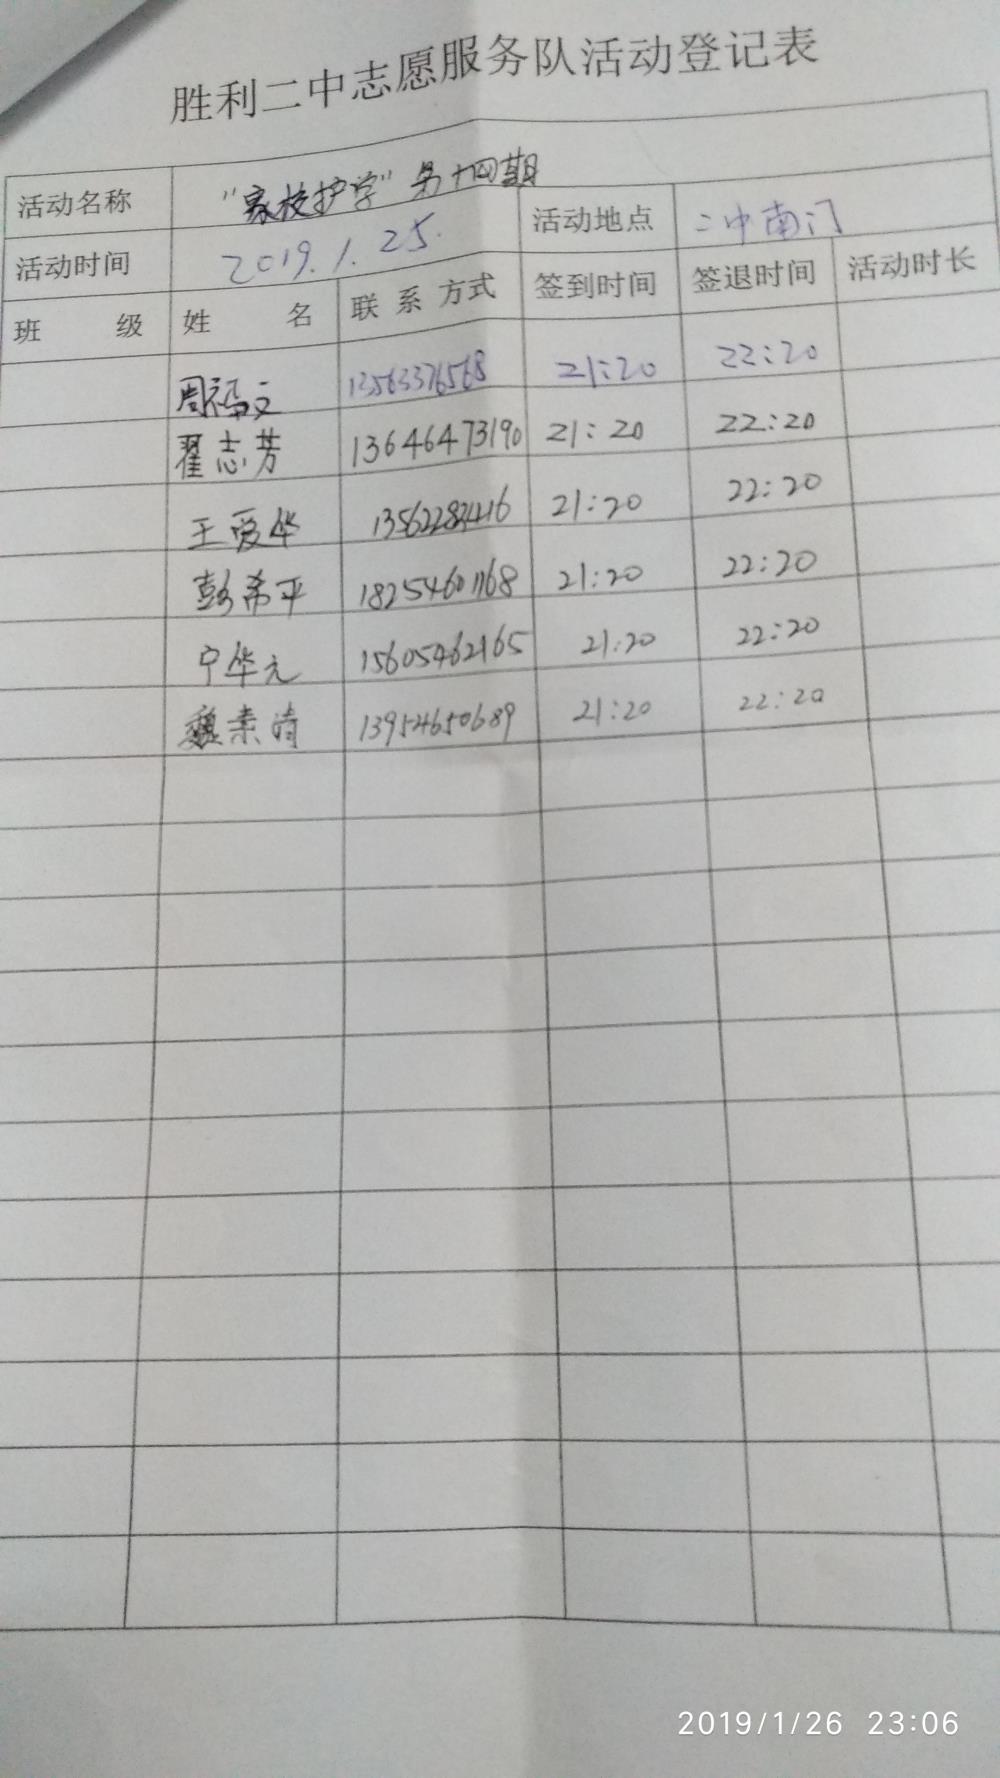 胜利二中志愿服务队活动登记表
活动名称 "家校护学"第十四期
活动时间 2019.1.25. 活动地点 二中南门
班 级 姓 名 联系方式 签到时间 签退时间 活动时长
周福文 13563376568 21:20 22:20
翟志芳 13646473190 21:20 22:20
王爱华 21:20 22:20
彭希平 18254601168 21:20 22:20
宁华元 15605462165 21:20 22:20
魏素清 13954650689 21:20 22:20
2019/1/26 23:06